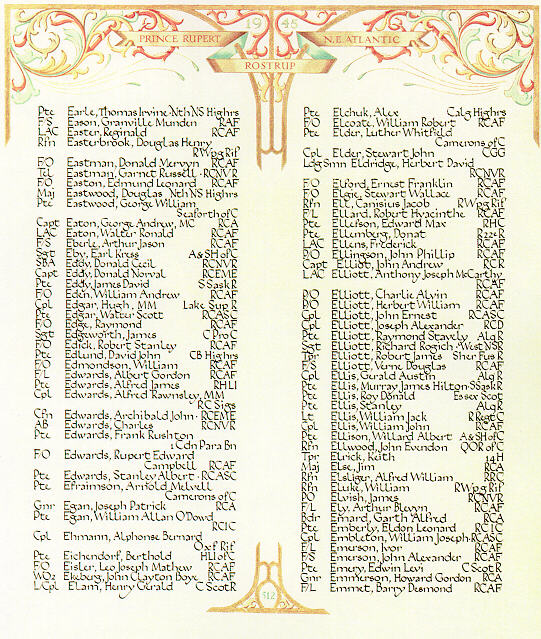 1945
PRINCE RUPERT
N.E. ATLANTIC
ROSTRUP
Pte Earle, Thomas Irvine · Nth NS Highrs
F/S Eason, Granville Munden RAF
LAC Easter, Reginald RCAF
Rfn Easterbrook, Douglas Henry
RWpg Rif
F/O Eastman, Donald Mervyn RCAF
Tel Eastman, Garnet Russell · RCNVR
F/O Easton, Edmund Leonard RCAF
Maj Eastwood, Douglas Nth NS Highrs
Pte Eastwood, George William
Seaforth of C
Capt Eaton, George Andrew, MC RCA
LAC Eaton, Walter Ronald RCAF
F/S Eberle, Arthur Jason RCAF
Sgt Eby, Earl Kruss A & SH of C
SBA Eddy, Donald Cecil RCNVR
Capt Eddy, Donald Norval RCEME
Pte Eddy, James David S Sask R
F/O Eden, William Andrew RCAF
Cpl Edgar, Hugh, MM Lake Sup R
Pte Edgar, Walter Scott RCASC
F/O Edge, Raymond RCAF
Sgt Edgeworth, James C Pro C
F/O Edick, Robert Stanley RCAF
Pte Edlund, David John CB Highrs
F/O Edmondson, William RCAF
F/L Edwards, Albert Gordon RCAF
Pte Edwards, Alfred James RHLI
Cpl Edwards, Alfred Rawnsley, MM
RC Sigs
Cfn Edwards, Archibald John · RCEME
AB Edwards, Charles RCNVR
Pte Edwards, Frank Rushton
1 Cdn Para Bn
F/O Edwards, Rupert Edward
Campbell RCAF
Pte Edwards, Stanley Albert · RCASC
Pte Efraimson, Arnold Melvell
Camerons of C
Gnr Egan, Joseph Patrick RCA
Pte Egan, William Allan O'Dowd
RCIC
Cpl Ehmann, Alphonse Bernard
Oxf Rif
Pte Eichendorf, Berthold HLI of C
F/O Eisler, Leo Joseph Mathew RCAF
WO2 Ekeburg, John Clayton Boye RCAF
L/Cpl Elam, Henry Gerald C Scot R
Pte Elchuk, Alex Calg Highrs
F/O Elcoate, William Robert RCAF
Pte Elder, Luther Whitfield
Camerons of C
Cpl Elder, Stewart John CGG
Ldg Smn Eldridge, Herbert David
RCNVR
F/O Elford, Ernest Franklin RCAF
F/O Elgie, Stewart Wallace RCAF
Rfn Elie, Canisius Jacob RWpg Rif
F/L Ellard, Robert Hyacinthe RCAF
Pte Ellefson, Edward Max RHC
Pte Ellemberg, Donat R22eR
LAC Ellens, Frederick RCAF
P/O Ellingson, John Philip RCAF
Capt Elliot, John Andrew RCR
LAC Elliott, Anthony Joseph McCarthy
RCAF
P/O Elliott, Charlie Alvin RCAF
P/O Elliott, Herbert William RCAF
Cpl Elliott, John Ernest RCASC
Cpl Elliott, Joseph Alexander RCD
Pte Elliott, Raymond Staveley Alq R
Sgt Elliott, Richard Rogich · West NSR
Tpr Elliott, Robert James Sher Fus R
F/S Elliott, Verne Douglas RCAF
Cpl Ellis, Gerald Austin Alq R
Pte Ellis, Murray James Hilton · S Sask R
Pte Ellis, Roy Donald Essex Scot
Pte Ellis, Stanley Alq R
Lt Ellis, William Jack R Regt C
Cpl Ellis, William John RCAF
Pte Ellison, Willard Albert A & SH of C
Rfn Ellwood, John Evendon QOR of C
Tpr Elrick, Keith 14H
Maj Else, Jim RCA
Rfn Elsliger, Alfred William RRC
Rfn Eluke, William RWpg Rif
PO Elvish, James RCNVR
F/L Ely, Arthur Blewyn RCAF
Bdr Emard, Garth Alfred RCA
Pte Emberly, Eldon Leonard RCIC
Cpl Embleton, William Joseph · RCASC
F/L Emerson, Ivor RCAF
F/S Emerson, John Alexander RCAF
Pte Emery, Edwin Levi C Scot R
Gnr Emmerson, Howard Gordon RCA
F/L Emmet, Barry Desmond RCAF
512